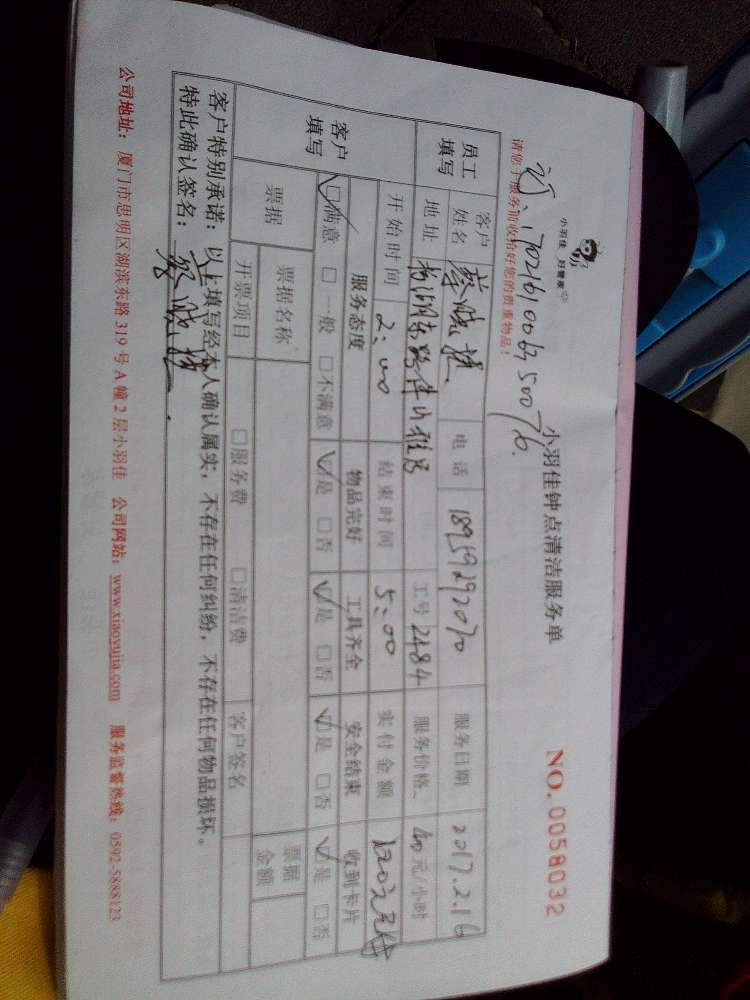 小羽佳 好管家
小羽佳钟点清洁服务单
NO. 0058032
170216100635007 6.
请您于服务前收拾好您的贵重物品！
员工填写 客户姓名 蔡晓 电话 18959292070 服务日期 2017.2.16
地址 湖东路 雅居 工号 2484 服务价格 40元/小时
开始时间 2:00 结束时间 5:00 实付金额 120元
客户填写 服务态度 物品完好 工具齐全 安全结束 收到卡片
☑满意 □一般 □不满意 ☑是 □否 ☑是 □否 ☑是 □否 ☑是 □否
票据 票据名称 票据金额
开票项目 □服务费 □清洁费 客户签名
客户特别承诺：以上填写经本人确认属实，不存在任何纠纷，不存在任何物品损坏。
特此确认签名：蔡晓
公司地址：厦门市思明区湖滨东路 319 号 A 幢 2 层小羽佳 公司网站：www.xiaoyujia.com 服务监督热线：0592-5888123